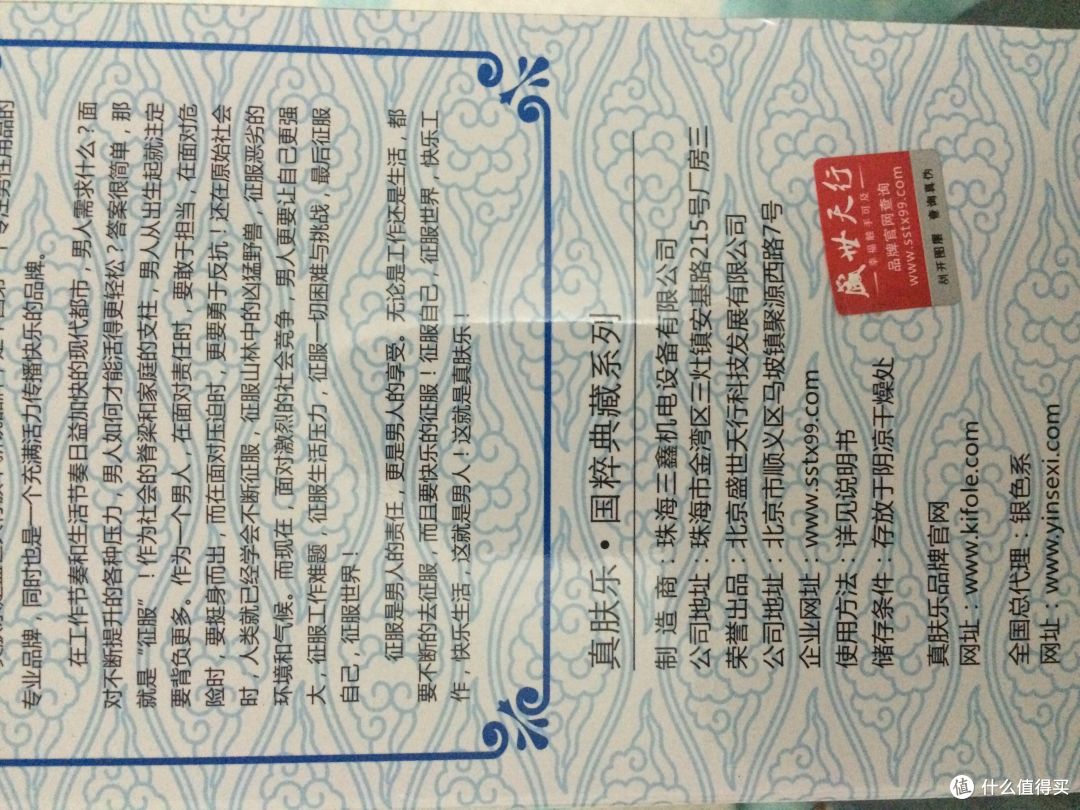 专业品牌，同时也是一个充满活力传播快乐的品牌。
在工作节奏和生活节奏日益加快的现代都市，男人需求什么？面
对不断提升的各种压力，男人如何才能活得更轻松？答案很简单，那
就是“征服”！作为社会的脊梁和家庭的支柱，男人从出生起就注定
要背负更多。作为一个男人，在面对责任时，要敢于担当，在面对危
险时，要挺身而出，而在面对压迫时，更要勇于反抗！还在原始社会
时，人类就已经学会不断征服，征服山林中的凶猛野兽，征服恶劣的
环境和气候。而现在，面对激烈的社会竞争，男人更要让自己更强
大，征服工作难题，征服生活压力，征服一切困难与挑战，最后征服
自己，征服世界！
征服是男人的责任，更是男人的享受。无论是工作还是生活，都
要不断的去征服，而且要快乐的征服！征服自己，征服世界，快乐工
作，快乐生活，这就是男人！这就是真肤乐！
真肤乐·国粹典藏系列
制 造 商：珠海三鑫机电设备有限公司
公司地址：珠海市金湾区三灶镇安基路215号厂房三
荣誉出品：北京盛世天行科技发展有限公司
公司地址：北京市顺义区马坡镇聚源西路7号
企业网址：www.sstx99.com
使用方法：详见说明书
储存条件：存放于阴凉干燥处
真肤乐品牌官网
网址：www.kifole.com
全国总代理：银色系
网址：www.yinsexi.com
盛世天行
幸福触手可及
品牌官网查询
www.sstx99.com
刮开图层 查询真伪
值 什么值得买